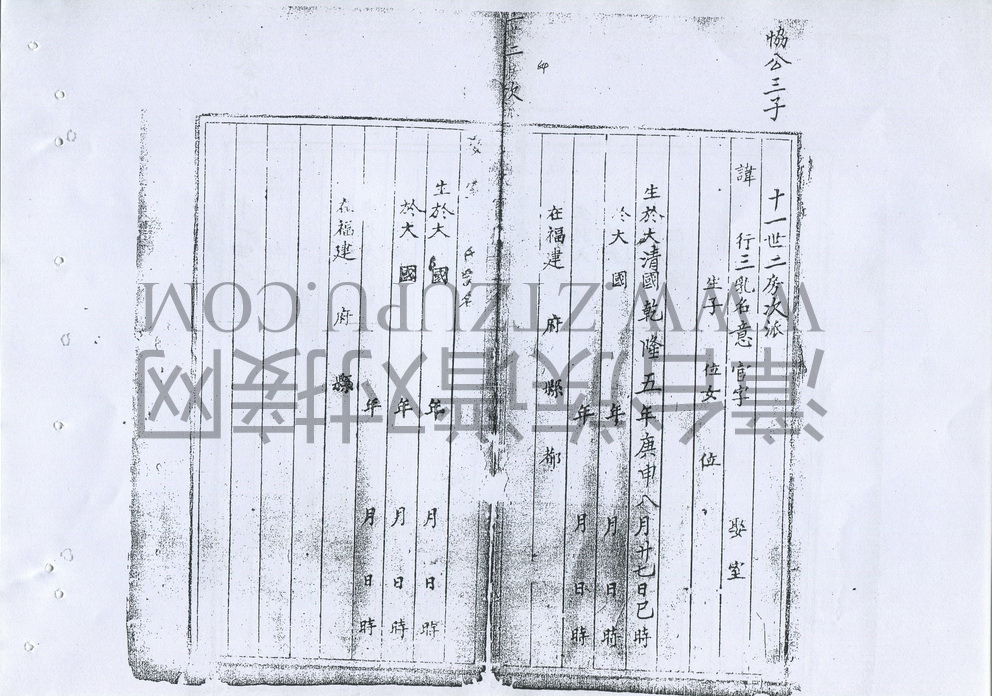 協公三子
十一世二房次派
諱 行三乳名意 官字 娶 室
生子 位女 位
生於大清國乾隆五年庚申八月廿七日巳時
於大 國 年 月 日 時
年 月 日 時
在福建 府 縣 鄉
氏 名
生於大 國 年 月 日 時
於大 國 年 月 日 時
年 月 日 時
在福建 府 縣
WWW.ZTZUPU.COM
漳台族谱对接网